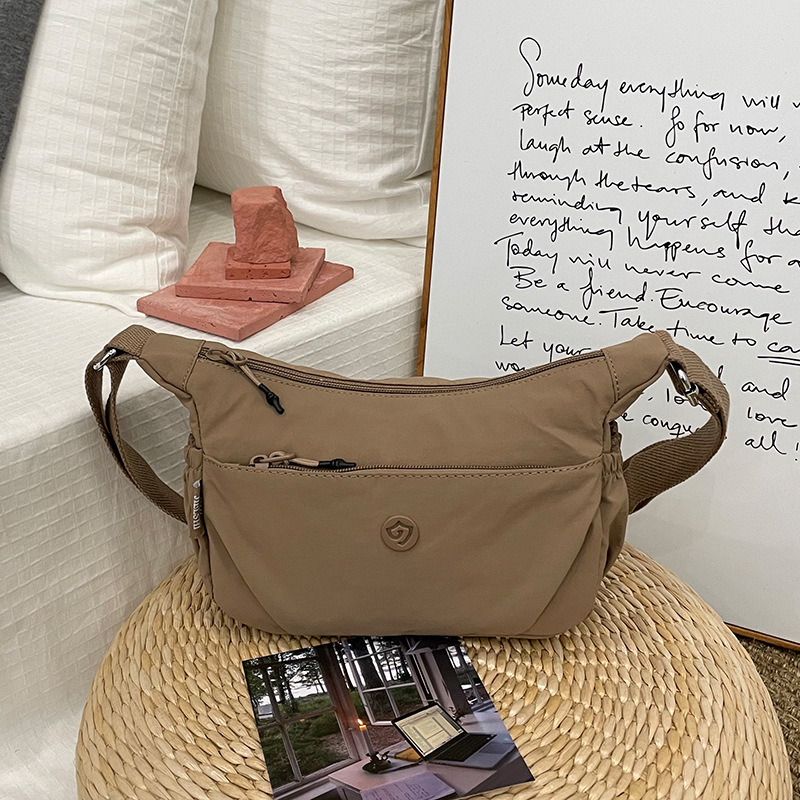 Someday everything will
perfect sense. So for now,
laugh at the confusion,
through the tears, and k
reminding yourself tha
everything happens for a
Today will never come
Be a friend. Encourage
someone. Take time to ca
Let your
and
lo
love
e conqu
all!